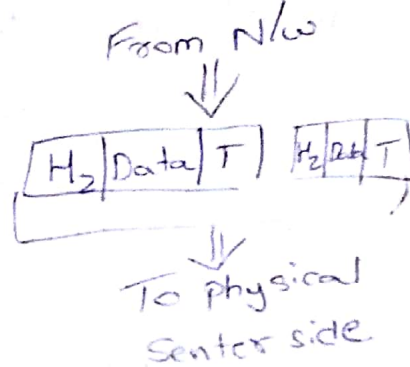 From N/w
H2 Data T H2 T
To physical
Senter side